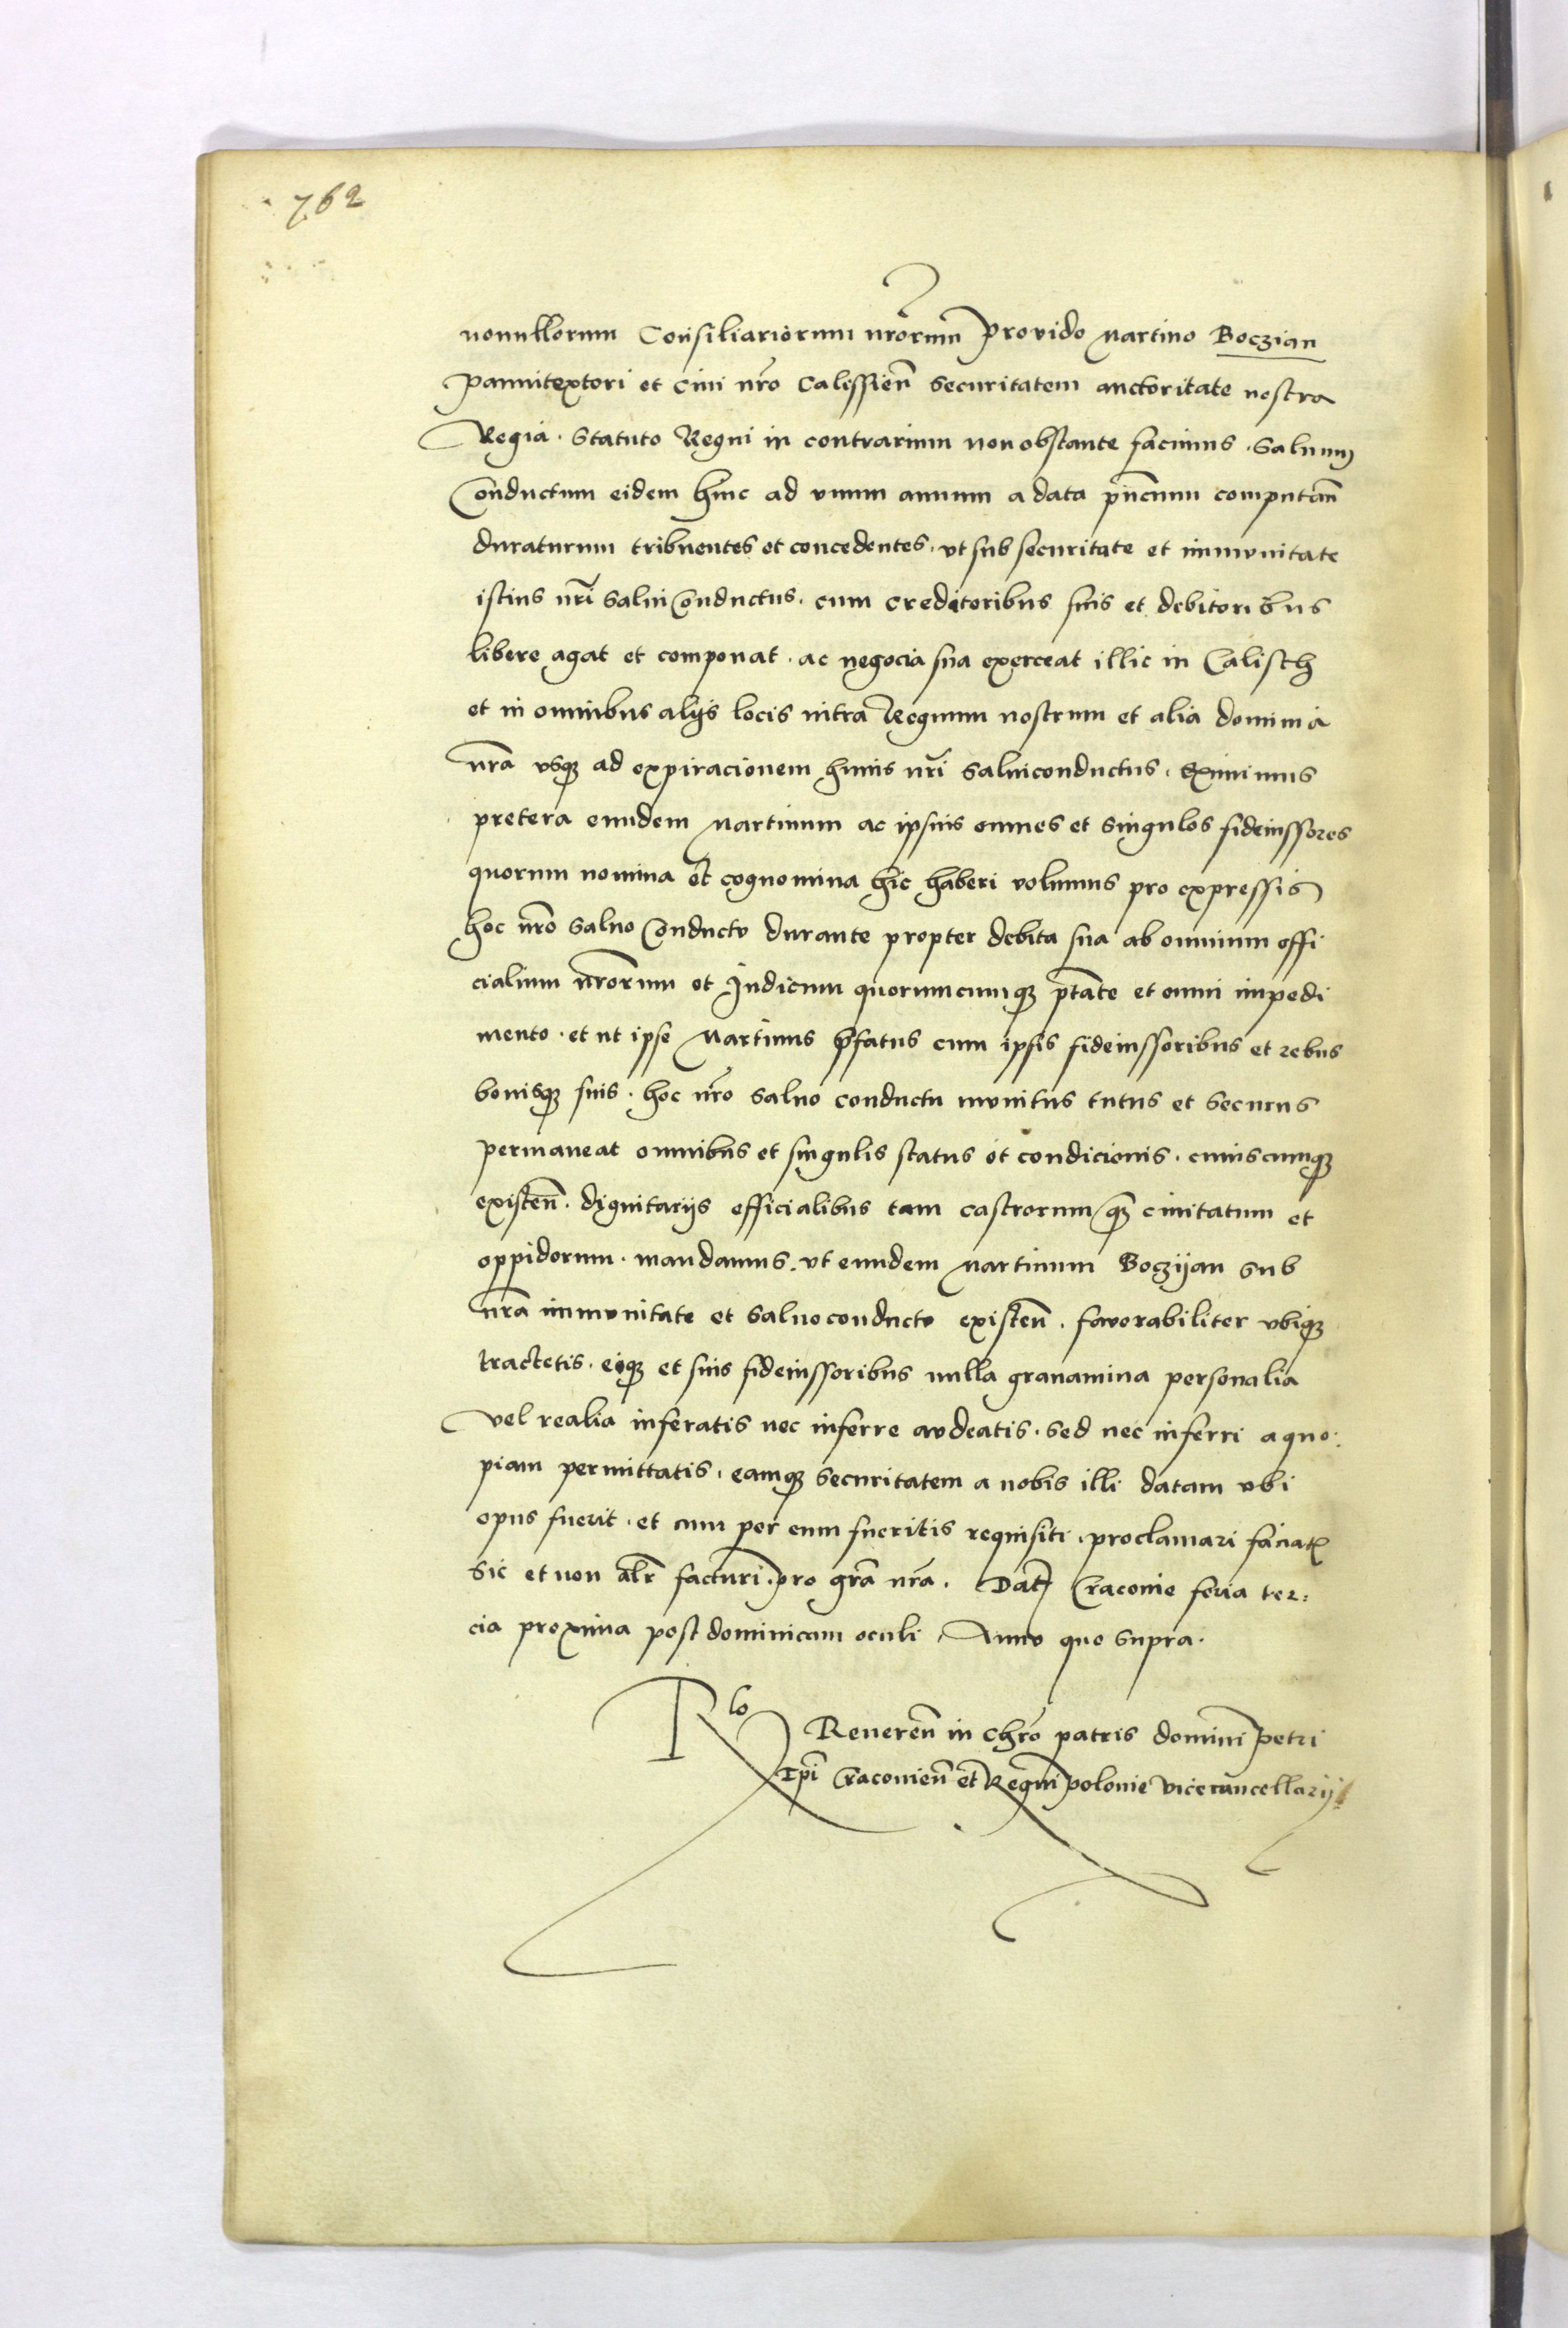 762
nonnullorum Consiliariorum nrorum provido Martino Boczian
pannitextori et civi nro Calissien̄ securitatem auctoritate nostra
Regia. Statuto Regni in contrarium non obstante facimus. Salvum
Conductum eidem hinc ad vnum annum a data pn̄cium computan̄
duraturum tribuentes et concedentes. vt sub securitate et immvnitate
istius nrī salui Conductus. cum creditoribus suis et debitoribus
libere agat et componat. ac negocia sua exerceat illic in Calisch
et in omnibus alijs locis intra Regnum nostrum et alia dominia
nrā vsqȝ ad expiracionem huius nrī saluiconductus. Eximimus
pretera eundem Martinum ac ipsius omnes et singulos fideiussores
quorum nomina et cognomina hic haberi volumus pro expressis
hoc nrō saluo Conductv durante propter debita sua ab omnium offi
cialium nrōrum et Judicum quorumcumqȝ ptāte et omni impedi
mento. et ut ipse Martinus p̄fatus cum ipsis fideiussoribus et rebus
bonisqȝ suis. hoc nrō saluo conductu mvnitus tutus et securus
permaneat omnibus et singulis status et condicionis. cuiuscumqȝ
existen̄. dignitarijs officialibus tam castrorum qȝ ciuitatum et
oppidorum. mandamus. vt eundem Martinum Boczijan sub
nrā immvnitate et saluoconductv existen̄. favorabiliter vbiqȝ
tractetis. eiqȝ et suis fideiussoribus nulla grauamina personalia
vel realia inferatis nec inferre avdeatis. sed nec inferri a quo:
piam permittatis. eamqȝ securitatem a nobis illi datam vbi
opus fuerit. et cum per eum fueritis requisiti. proclamari faciatꝭ
sic et non alr̄ facturi. pro grā nrā. Dat̄ Cracovie feria ter:
cia proxima post dominicam oculi. Anno quo supra.
Rlo Reueren̄ in chrō patris domini petri
Epī Cracovien̄ et Regni polonie vicecancellarij